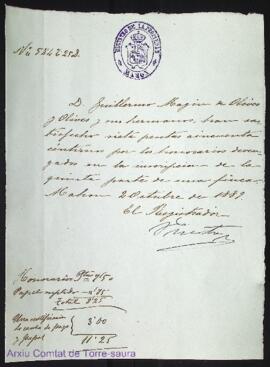 REGISTRO DE LA PROPIEDAD
MAHON
D. Guillermo Magin de Olives
y Olives y sus hermanos, han sa-
tisfecho siete pesetas cincuenta
céntimos por los honorarios deven-
gados en la inscripcion de la
quinta parte de una finca.
Mahon 2 Octubre de 1889.
El Registrador
Honorarios Ptas 7'50
Papel suplido "75
Total 8'25
3'00
y papel
11'25
Arxiu Comtat de Torre-saura